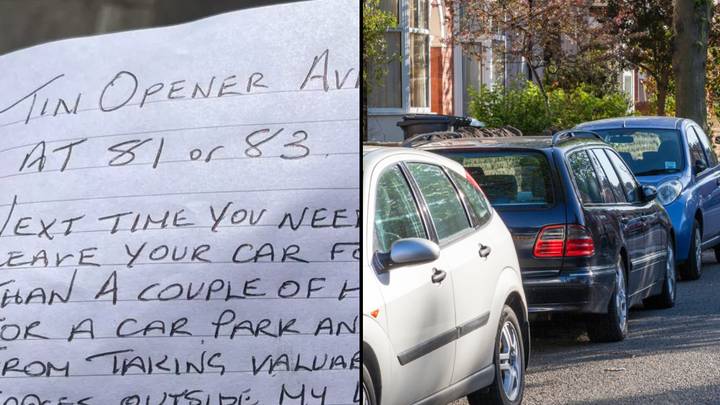 TIN OPENER AV
AT 81 or 83.
NEXT TIME YOU NEE
LEAVE YOUR CAR FO
THAN A COUPLE OF H
FOR A CAR PARK AN
FROM TAKING VALUAB
SPACES OUTSIDE MY